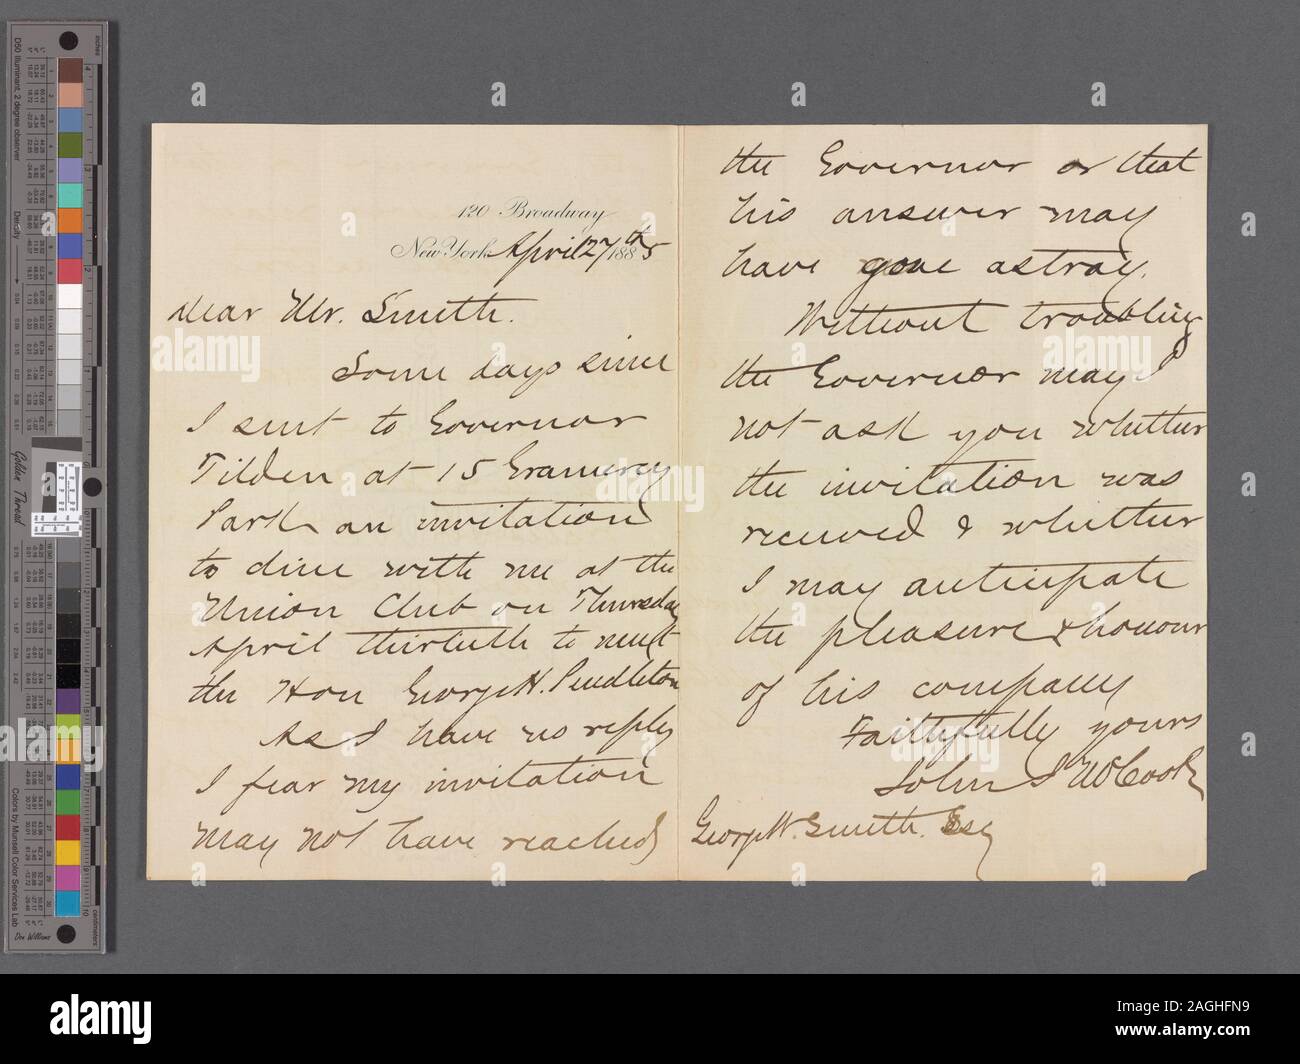 120 Broadway
New York April 27th 1885
Dear Mr. Smith.
Some days since
I sent to Governor
Tilden at 15 Gramercy
Park an invitation
to dine with me at the
Union Club on Thursday
April thirtieth to meet
the Hon George H. Pendleton
As I have no reply
I fear my invitation
may not have reached
the Governor or that
his answer may
have gone astray.
Without troubling
the Governor may I
not ask you whether
the invitation was
received & whether
I may anticipate
the pleasure & honour
of his company
Faithfully yours
John J McCook
George W. Smith. Esq
inches
D50 Illuminant, 2 degree observer
Density
Golden Thread
Colors by Munsell Color Services Lab
Don Williams
centimeters
a alamy
alamy
Image ID: 2AGHFN9
www.alamy.com